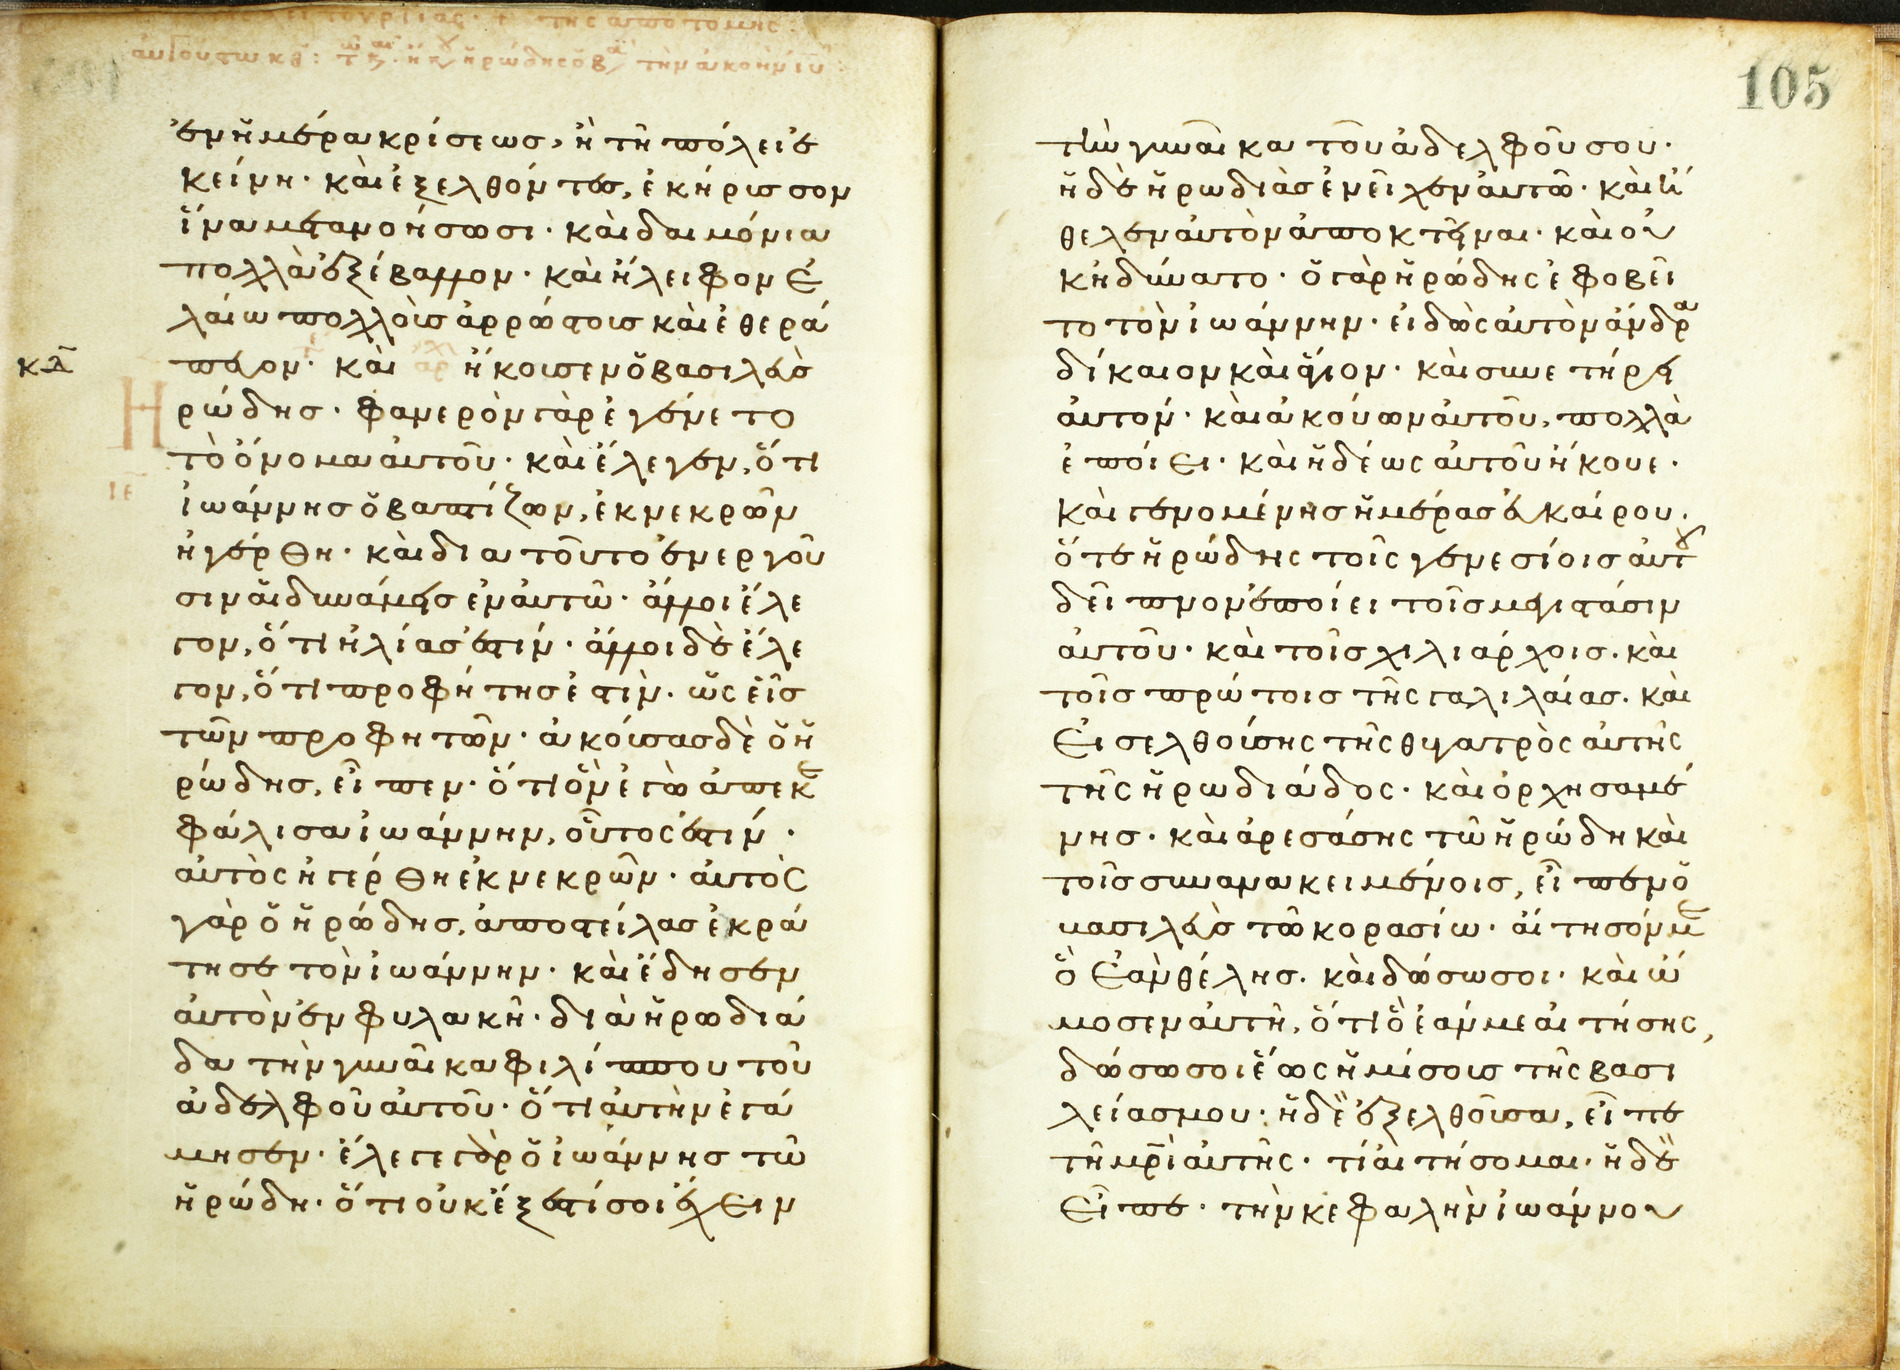 ἐν ἡμέρα κρίσεως, ἢ τῆ πόλει ἐ
κείνη· καὶ ἐξελθόντες, ἐκήρυσσον
ἵνα μετανοήσωσι· καὶ δαιμόνια
πολλὰ ἐξέβαλλον· καὶ ἤλειφον ἐ
λαίω πολλοὺς ἀρρώστους καὶ ἐθερά
πευον· καὶ ἤκουσεν ὁ βασιλεὺς
κδ
Ηρώδησ· φανερὸν γὰρ ἐγένετο
τὸ ὄνομα αὐτοῦ· καὶ ἔλεγεν, ὅτι
ιε
ἰωάννησ ὁ βαπτίζων, ἐκ νεκρῶν
ἠγέρθη· καὶ δια τοῦτο ἐνεργοῦ
σιν αἱ δυνάμεις ἐν αὐτῶ· ἄλλοι ἔλε
γον, ὅτι ἠλίας ἐστίν· ἄλλοι δὲ ἔλε
γον, ὅτι προφήτησ ἐστὶν· ὡς εἷς
τῶν προφητῶν· ἀκούσας δὲ ὁ ἡ
ρώδησ, εἶπεν· ὅτι ὃν ἐγὼ ἀπεκε
φάλισα ἰωάννην, οὗτος ἐστίν·
αὐτὸς ἠγέρθη ἐκ νεκρῶν· αὐτὸς
γὰρ ὁ ἡρώδησ, ἀποστείλας ἐκρά
τησε τὸν ἰωάννην· καὶ ἔδησεν
αὐτὸν ἐν φυλακῆ· διὰ ἡρωδιά
δα τὴν γυναῖκα φιλίππου τοῦ
ἀδελφοῦ αὐτοῦ· ὅτι αὐτὴν ἐγά
μησεν· ἔλεγε γὰρ ὁ ἰωάννησ τῶ
ἡρώδη· ὅτι οὐκ ἔξεστί σοι ἔχειν
105
τὴν γυναῖκα τοῦ ἀδελφοῦ σου·
ἡ δὲ ἡρωδιὰς ἐνεῖχεν αὐτῶ· καὶ ἤ
θελεν αὐτὸν ἀποκτεῖναι· καὶ οὐ
κ ἠδύνατο· ὁ γὰρ ἡρώδης ἐφοβεῖ
το τὸν ἰωάννην· εἰδὼς αὐτὸν ἄνδρα
δίκαιον καὶ ἅγιον· καὶ συνετήρει
αὐτόν· καὶ ἀκούων αὐτοῦ, πολλὰ
ἐποίει· καὶ ἡδέως αὐτοῦ ἤκουε·
καὶ γενομένησ ἡμέρασ εὐκαίρου·
ὅτε ἡρώδης τοῖς γενεσίοισ αὐτοῦ
δεῖπνον ἐποίει τοῖσ μεγιστάσιν
αὐτοῦ· καὶ τοῖσ χιλιάρχοισ· καὶ
τοῖσ πρώτοισ τῆς γαλιλαίασ· καὶ
εἰσελθούσης τῆς θυγατρὸς αὐτῆς
τῆς ἡρωδιάδος· καὶ ὀρχησαμέ
νησ· καὶ ἀρεσάσης τῶ ἡρώδη καὶ
τοῖσ συνανακειμένοισ, εἶπεν ὁ
βασιλεὺς τῶ κορασίω· αἴτησόν με
ὃ ἐὰν θέλησ· καὶ δώσω σοι· καὶ ὤ
μοσεν αὐτῆ, ὅτι ὃ ἐάν με αἰτήσης,
δώσω σοι ἕως ἡμίσους τῆς βασι
λείασ μου· ἡ δὲ ἐξελθοῦσα, εἶπε
τῆ μρὶ αὐτῆς· τί αἰτήσομαι· ἡ δὲ
εἶπε· τὴν κεφαλὴν ἰωάννου